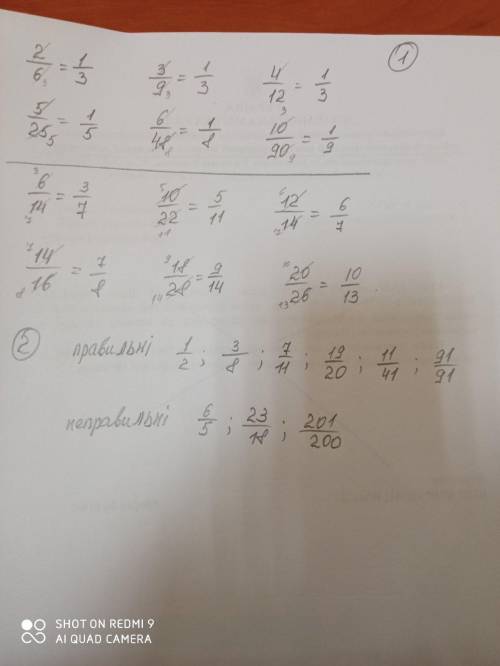 1
2/6 = 1/3 3/9 = 1/3 4/12 = 1/3
5/25 = 1/5 6/48 = 1/8 10/90 = 1/9
6/14 = 3/7 10/22 = 5/11 12/14 = 6/7
14/16 = 7/8 18/28 = 9/14 20/26 = 10/13
2 правильні 1/2 ; 3/8 ; 7/11 ; 19/20 ; 11/41 ; 91/91
неправильні 6/5 ; 23/18 ; 201/200
SHOT ON REDMI 9
AI QUAD CAMERA